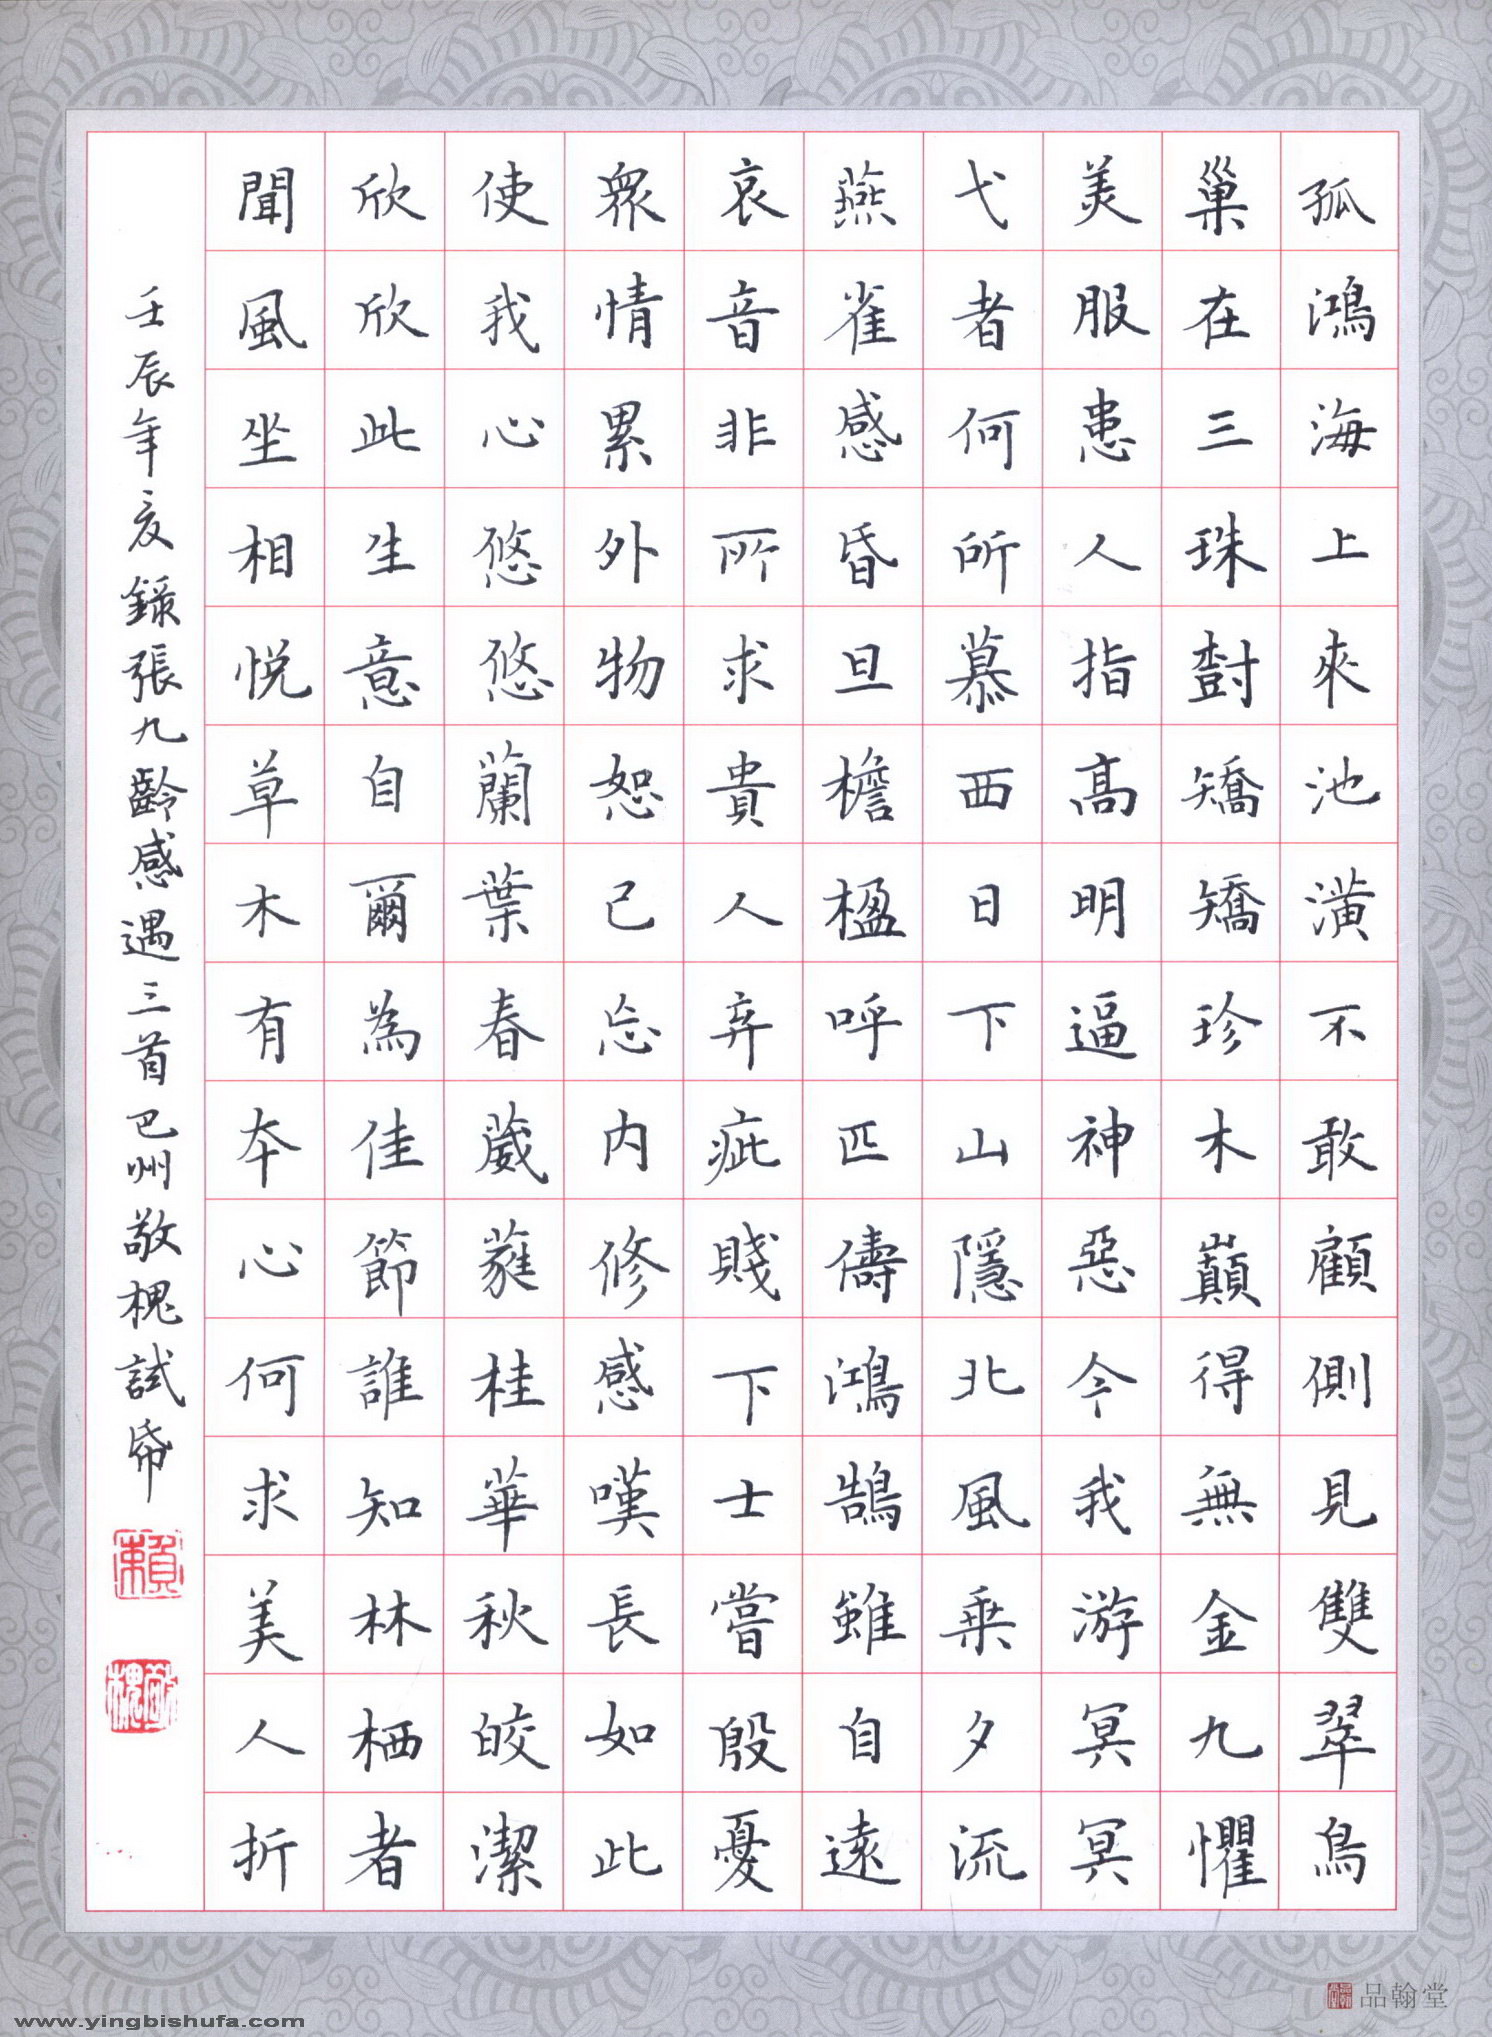 孤鴻海上來池潢不敢顧側見雙翠鳥
巢在三珠樹矯矯珍木巔得無金九懼
美服患人指高明逼神惡今我游冥冥
弋者何所慕西日下山隱北風乗夕流
燕雀感昏旦檐楹呼匹儔鴻鵠雖自遠
哀音非所求貴人弃疵賤下士嘗殷憂
眾情累外物恕己忘内修感嘆長如此
使我心悠悠蘭葉春葳蕤桂華秋皎潔
欣欣此生意自爾為佳節誰知林栖者
聞風坐相悅草木有本心何求美人折
壬辰年夏錄張九齡感遇三首巴州敬槐試帋
賴
敬槐
品翰堂
www.yingbishufa.com